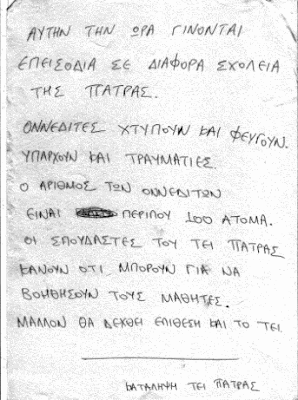 ΑΥΤΗΝ ΤΗΝ ΩΡΑ ΓΙΝΟΝΤΑΙ
ΕΠΕΙΣΟΔΙΑ ΣΕ ΔΙΑΦΟΡΑ ΣΧΟΛΕΙΑ
ΤΗΣ ΠΑΤΡΑΣ.
ΟΝΝΕΔΙΤΕΣ ΧΤΥΠΟΥΝ ΚΑΙ ΦΕΥΓΟΥΝ.
ΥΠΑΡΧΟΥΝ ΚΑΙ ΤΡΑΥΜΑΤΙΕΣ
Ο ΑΡΙΘΜΟΣ ΤΩΝ ΟΝΝΕΔΙΤΩΝ
ΕΙΝΑΙ ΠΕΡΙΠΟΥ 100 ΑΤΟΜΑ.
ΟΙ ΣΠΟΥΔΑΣΤΕΣ ΤΟΥ ΤΕΙ ΠΑΤΡΑΣ
ΚΑΝΟΥΝ ΟΤΙ ΜΠΟΡΟΥΝ ΓΙΑ ΝΑ
ΒΟΗΘΗΣΟΥΝ ΤΟΥΣ ΜΑΘΗΤΕΣ.
ΜΑΛΛΟΝ ΘΑ ΔΕΧΘΕΙ ΕΠΙΘΕΣΗ ΚΑΙ ΤΟ ΤΕΙ.
ΚΑΤΑΛΗΨΗ ΤΕΙ ΠΑΤΡΑΣ